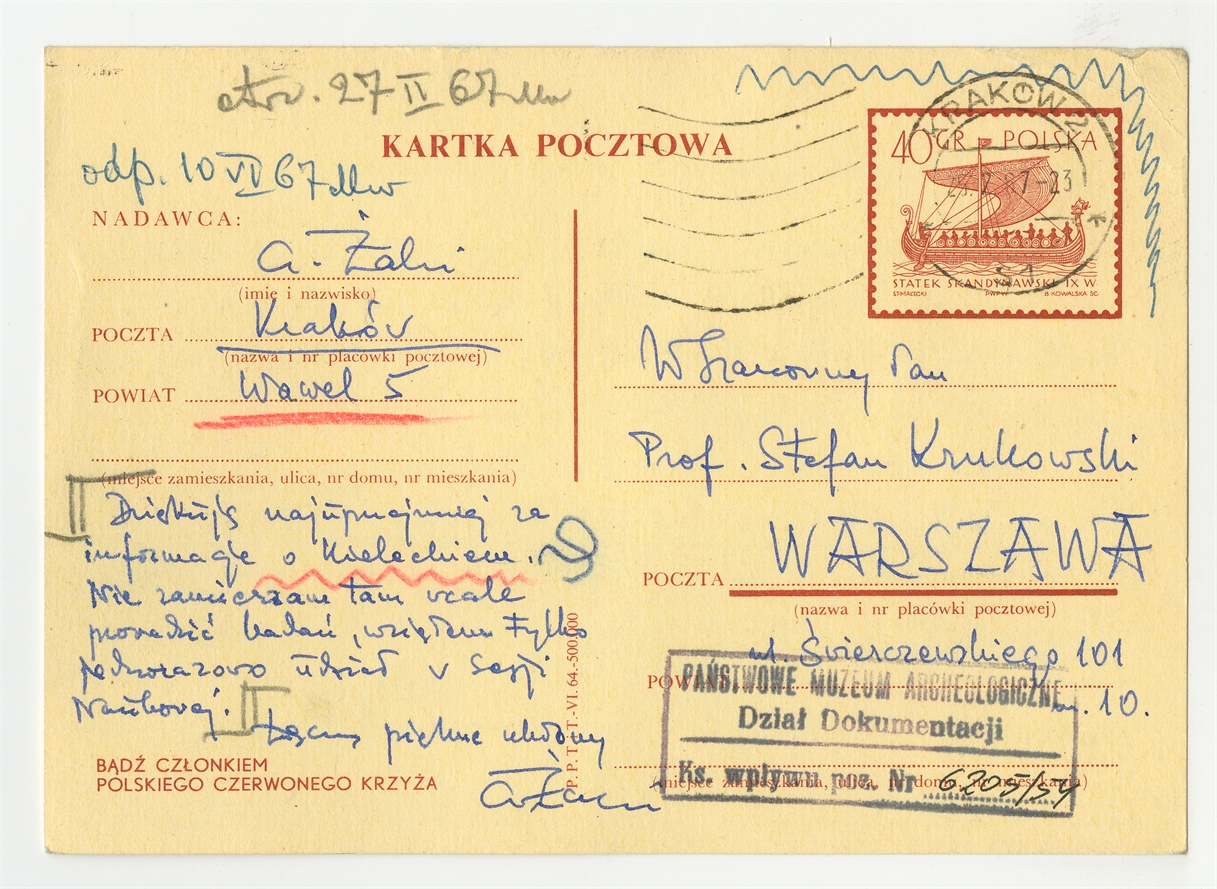 otrz. 27 II 67
KARTKA POCZTOWA
odp. 10 VI 67
NADAWCA:
A. Żaki
(imię i nazwisko)
POCZTA Kraków
(nazwa i nr placówki pocztowej)
POWIAT Wawel 5
(miejsce zamieszkania, ulica, nr domu, nr mieszkania)
Dziękuję najuprzejmiej za
informacje o Kieleckiem.
Nie zamierzam tam wcale
prowadzić badań, wziąłem tylko
jednorazowo udział w Sesji
Naukowej.
Łączę piękne ukłony
A. Żaki
BĄDŹ CZŁONKIEM
POLSKIEGO CZERWONEGO KRZYŻA
P.P.T.T.-VI.64.-500.000
KRAKÓW 2
40 GR POLSKA
67-23
STATEK SKANDYNAWSKI IX W
ST.MAŁECKI PWPW B.KOWALSKA SC.
W Szanowny Pan
Prof. Stefan Krukowski
POCZTA WARSZAWA
(nazwa i nr placówki pocztowej)
ul. Świerczewskiego 101
POWIAT m. 10.
(miejsce zamieszkania, ulica, nr domu, nr mieszkania)
PAŃSTWOWE MUZEUM ARCHEOLOGICZNE
Dział Dokumentacji
Ks. wpływu poz. Nr 6205/54